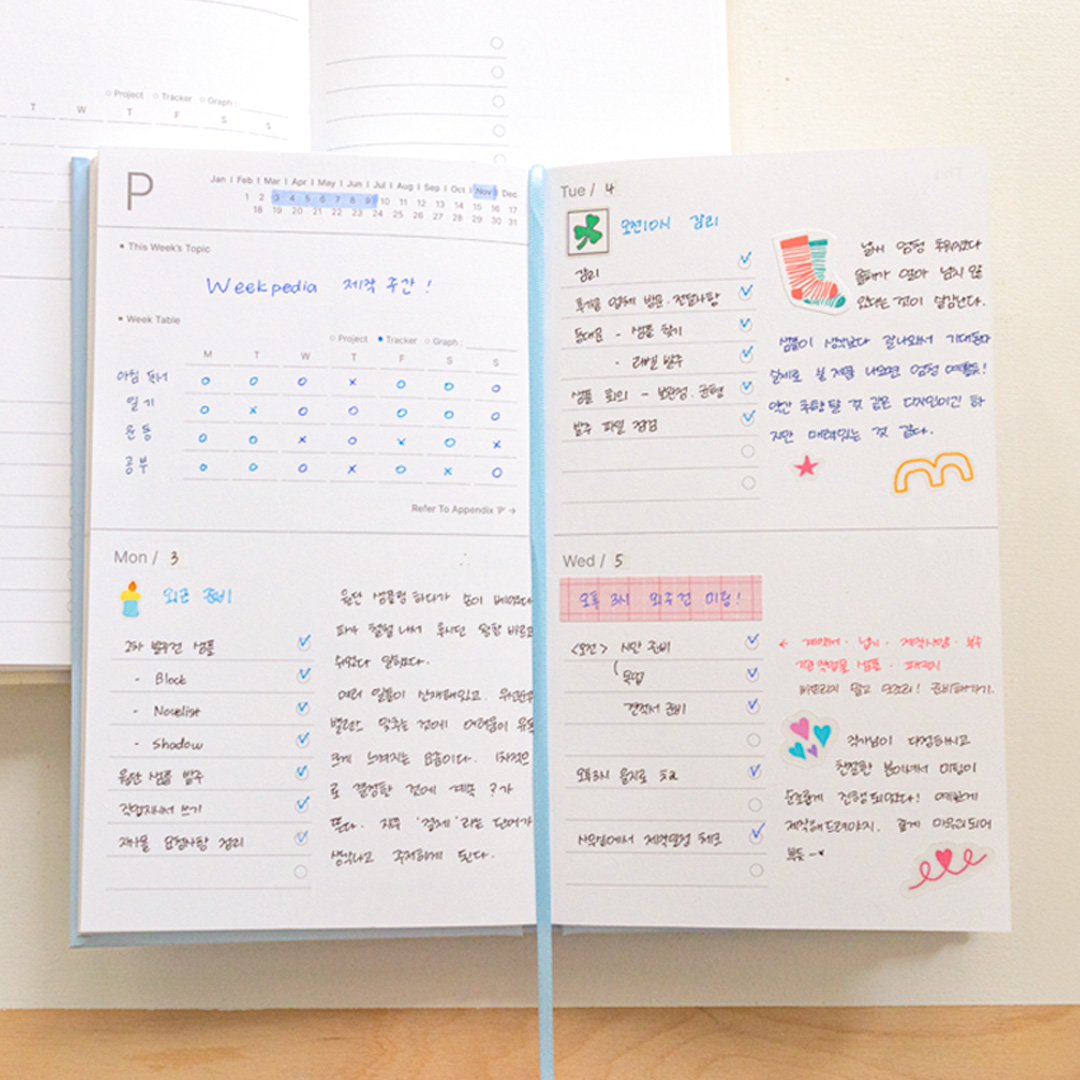 Project Tracker Graph :
T W T F S S
P
Jan I Feb I Mar I Apr I May I Jun I Jul I Aug I Sep I Oct I Nov I Dec
1 2 3 4 5 6 7 8 9 10 11 12 13 14 15 16 17
18 19 20 21 22 23 24 25 26 27 28 29 30 31
This Week's Topic
Weekpedia 제작 주간!
Week Table
Project Tracker Graph :
M T W T F S S
아침 독서 o o o x o o o
일기 o x o o o o o
운동 o o x o x o x
공부 o o o x o x o
Refer To Appendix 'P' →
Mon / 3
외근 준비
2차 발주건 샘플
- Block
- Novelist
- Shadow
원단 샘플 발주
작업지시서 쓰기
요청사항 정리
원단 샘플링 하다가 손이 베였다
쉬었다 일했다.
여러 일들이 산재해있고.
밸런스 맞추는 것에 어려움이
크게 느껴지는 요즘이다. 1차적으
로 결정한 것에 계속 ?가
뜬다. 자꾸 '결제'라는 단어가
생각나고 주저하게 된다.
Tue / 4
오전10시 감리
감리
후가공 업체 방문. 전달사항
동대문 - 샘플 찾기
- 라벨 발주
샘플 회의 - 보완점.
발주 파일 점검
날씨 엄청 추워졌다
올해가 얼마 남지 않
았다는 것이 실감난다.
샘플이 생각보다 잘나와서 기대된다
실제로 본 제품 나오면 엄청 예쁠듯!
약간 추항 탈 것 같은 디자인이긴 하
지만 매력있는 것 같다.
Wed / 5
오후 3시 외주건 미팅!
<오전> 시안 준비
목업
견적서 준비
오후3시 을지로
사무실에서 제작일정 체크
← 계약서 · 납기 · 제작사양 · 부수
작업물 샘플 · 패키지
빠뜨리지 말고 준비해가기.
작가님이 다정하시고
친절한 분이셔서 미팅이
순조롭게 진행되었다! 예쁘게
제작해드려야지. 함께 마무리되어
뿌듯